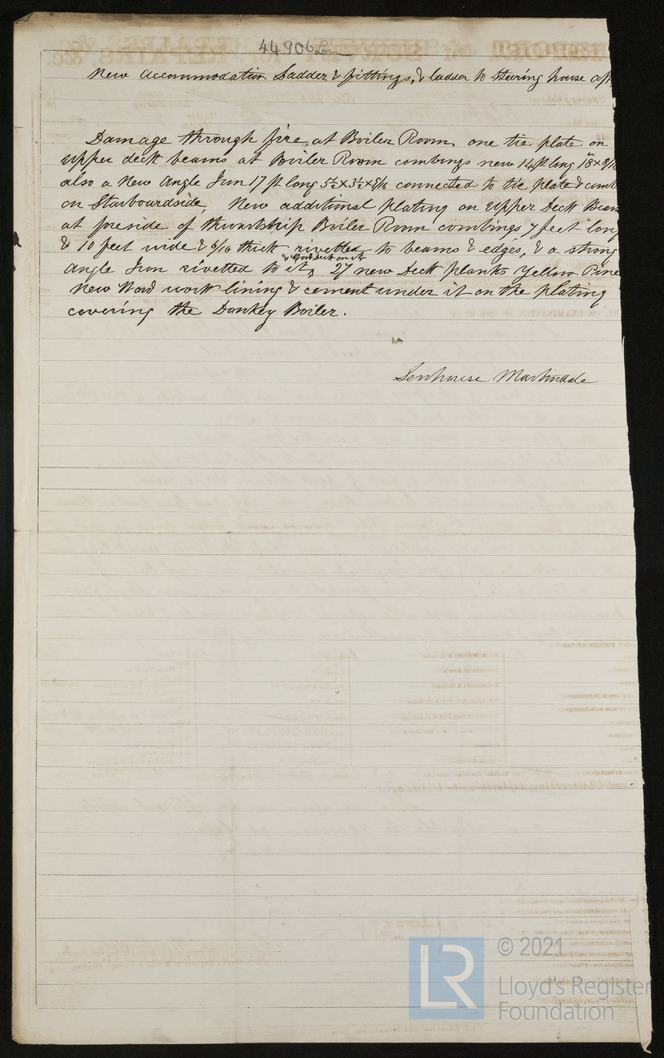 44906 Lon
New Accommodation Ladder & fittings, & ladder to Steering house aft
Damage through fire at Boiler Room, one tie plate on
upper deck beams at Boiler Room combings new 14 ft long 18" x 8/16
also a New Angle Iron 17 ft long 5½ x 3½ x 8/16 connected to tie plate & comb
on Starboardside, New additional plating on Upper Deck Beam
at foreside of thwartship Boiler Room combings 7 feet long
& 10 feet wide & 6/16 thick rivetted to beams & edges, & a strong
& Wood Deck on it
Angle Iron rivetted to it, 27 new Deck planks Yellow Pine
New Wood work lining & cement under it on the plating
covering the Donkey Boiler.
Senhouse Martindale
LR
© 2021
Lloyd's Register
Foundation